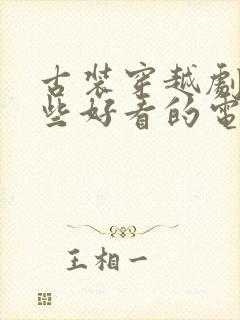 古装穿越劇
些好看的電
王相一